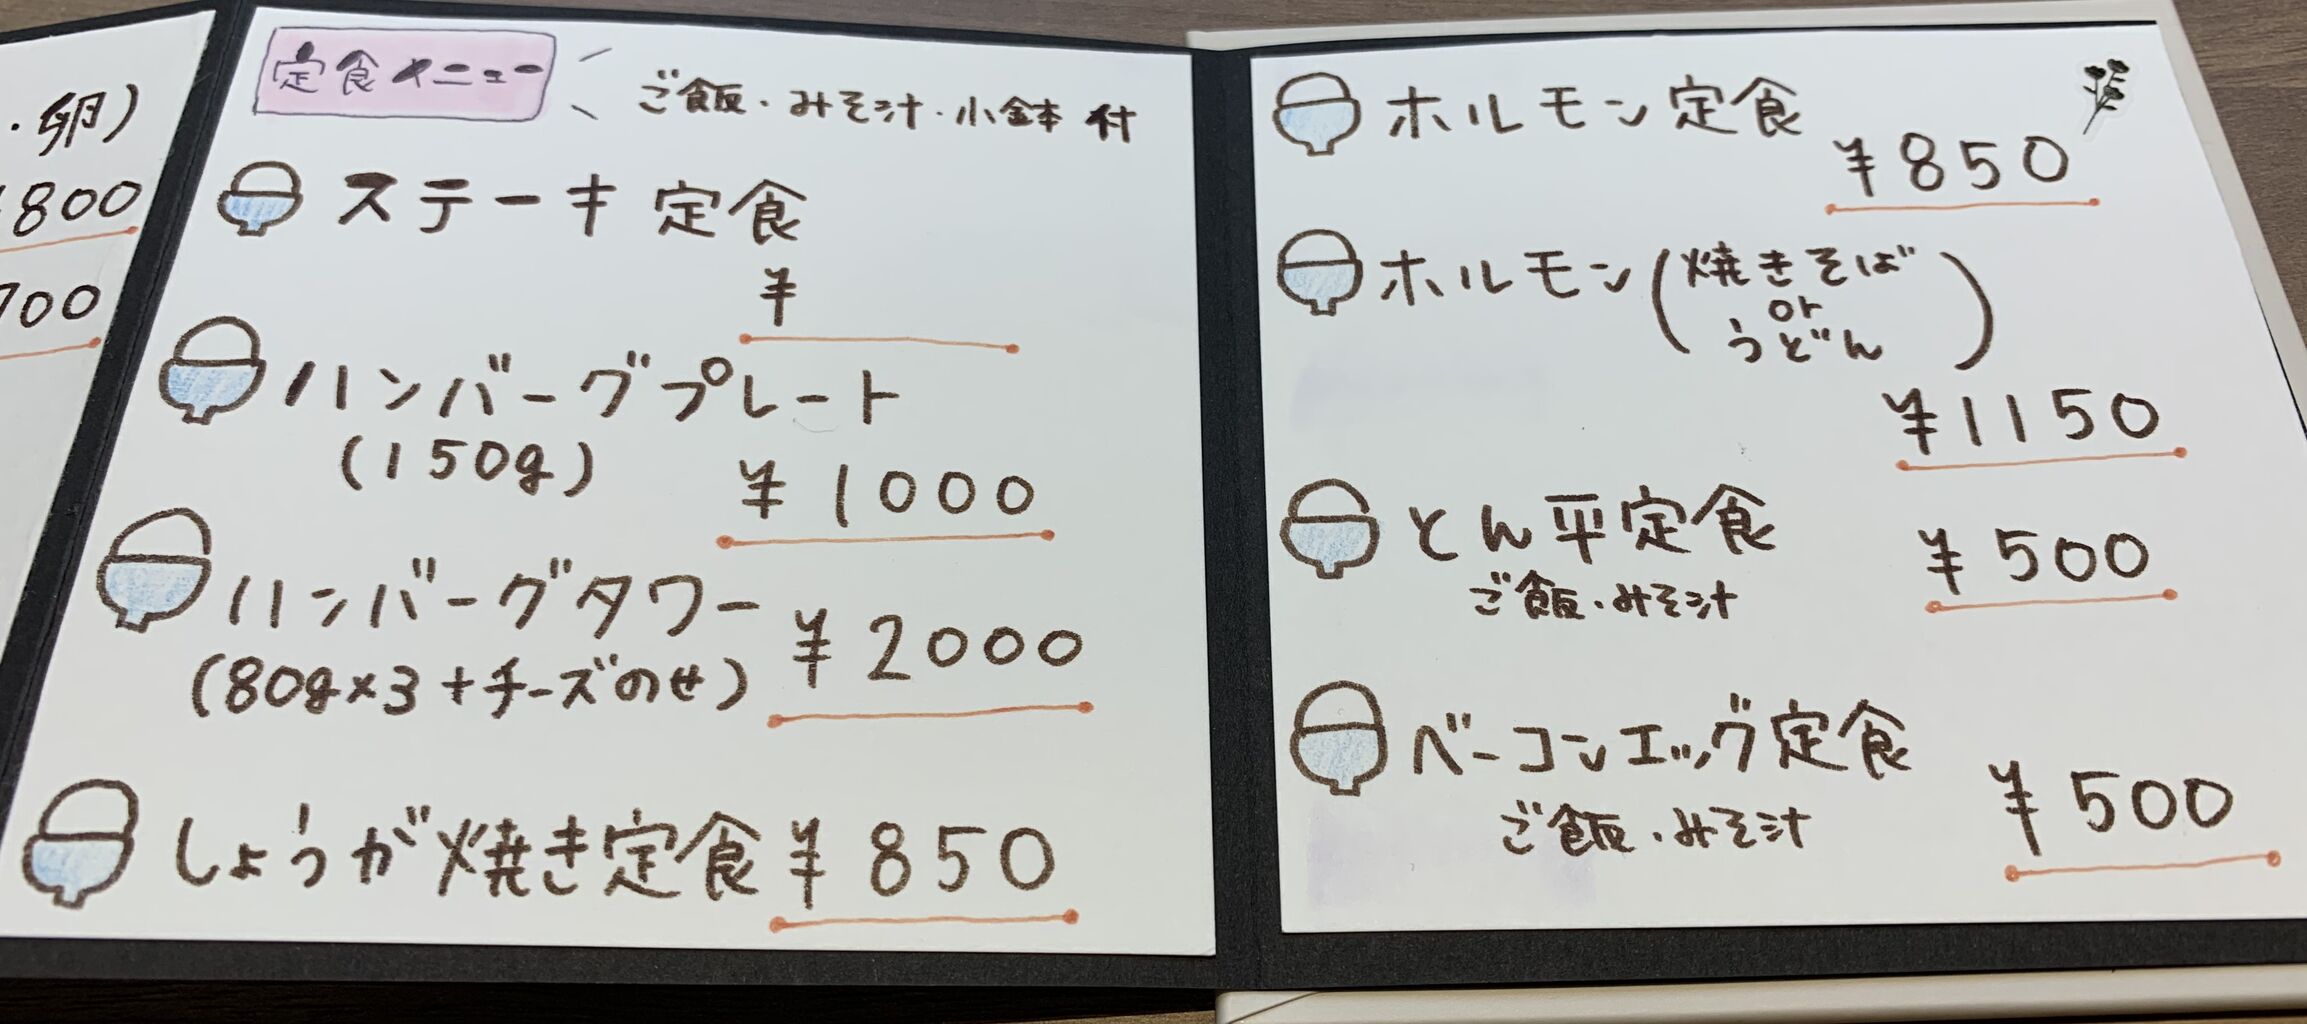 ・卵)
800
700
定食メニュー
ご飯・みそ汁・小鉢 付
ステーキ定食
¥
ハンバーグプレート
(150g)
¥1000
ハンバーグタワー
¥2000
(80g×3+チーズのせ)
しょうが焼き定食 ¥850
ホルモン定食
¥850
ホルモン(焼きそば
or
うどん)
¥1150
とん平定食
¥500
ご飯・みそ汁
ベーコンエッグ定食
¥500
ご飯・みそ汁